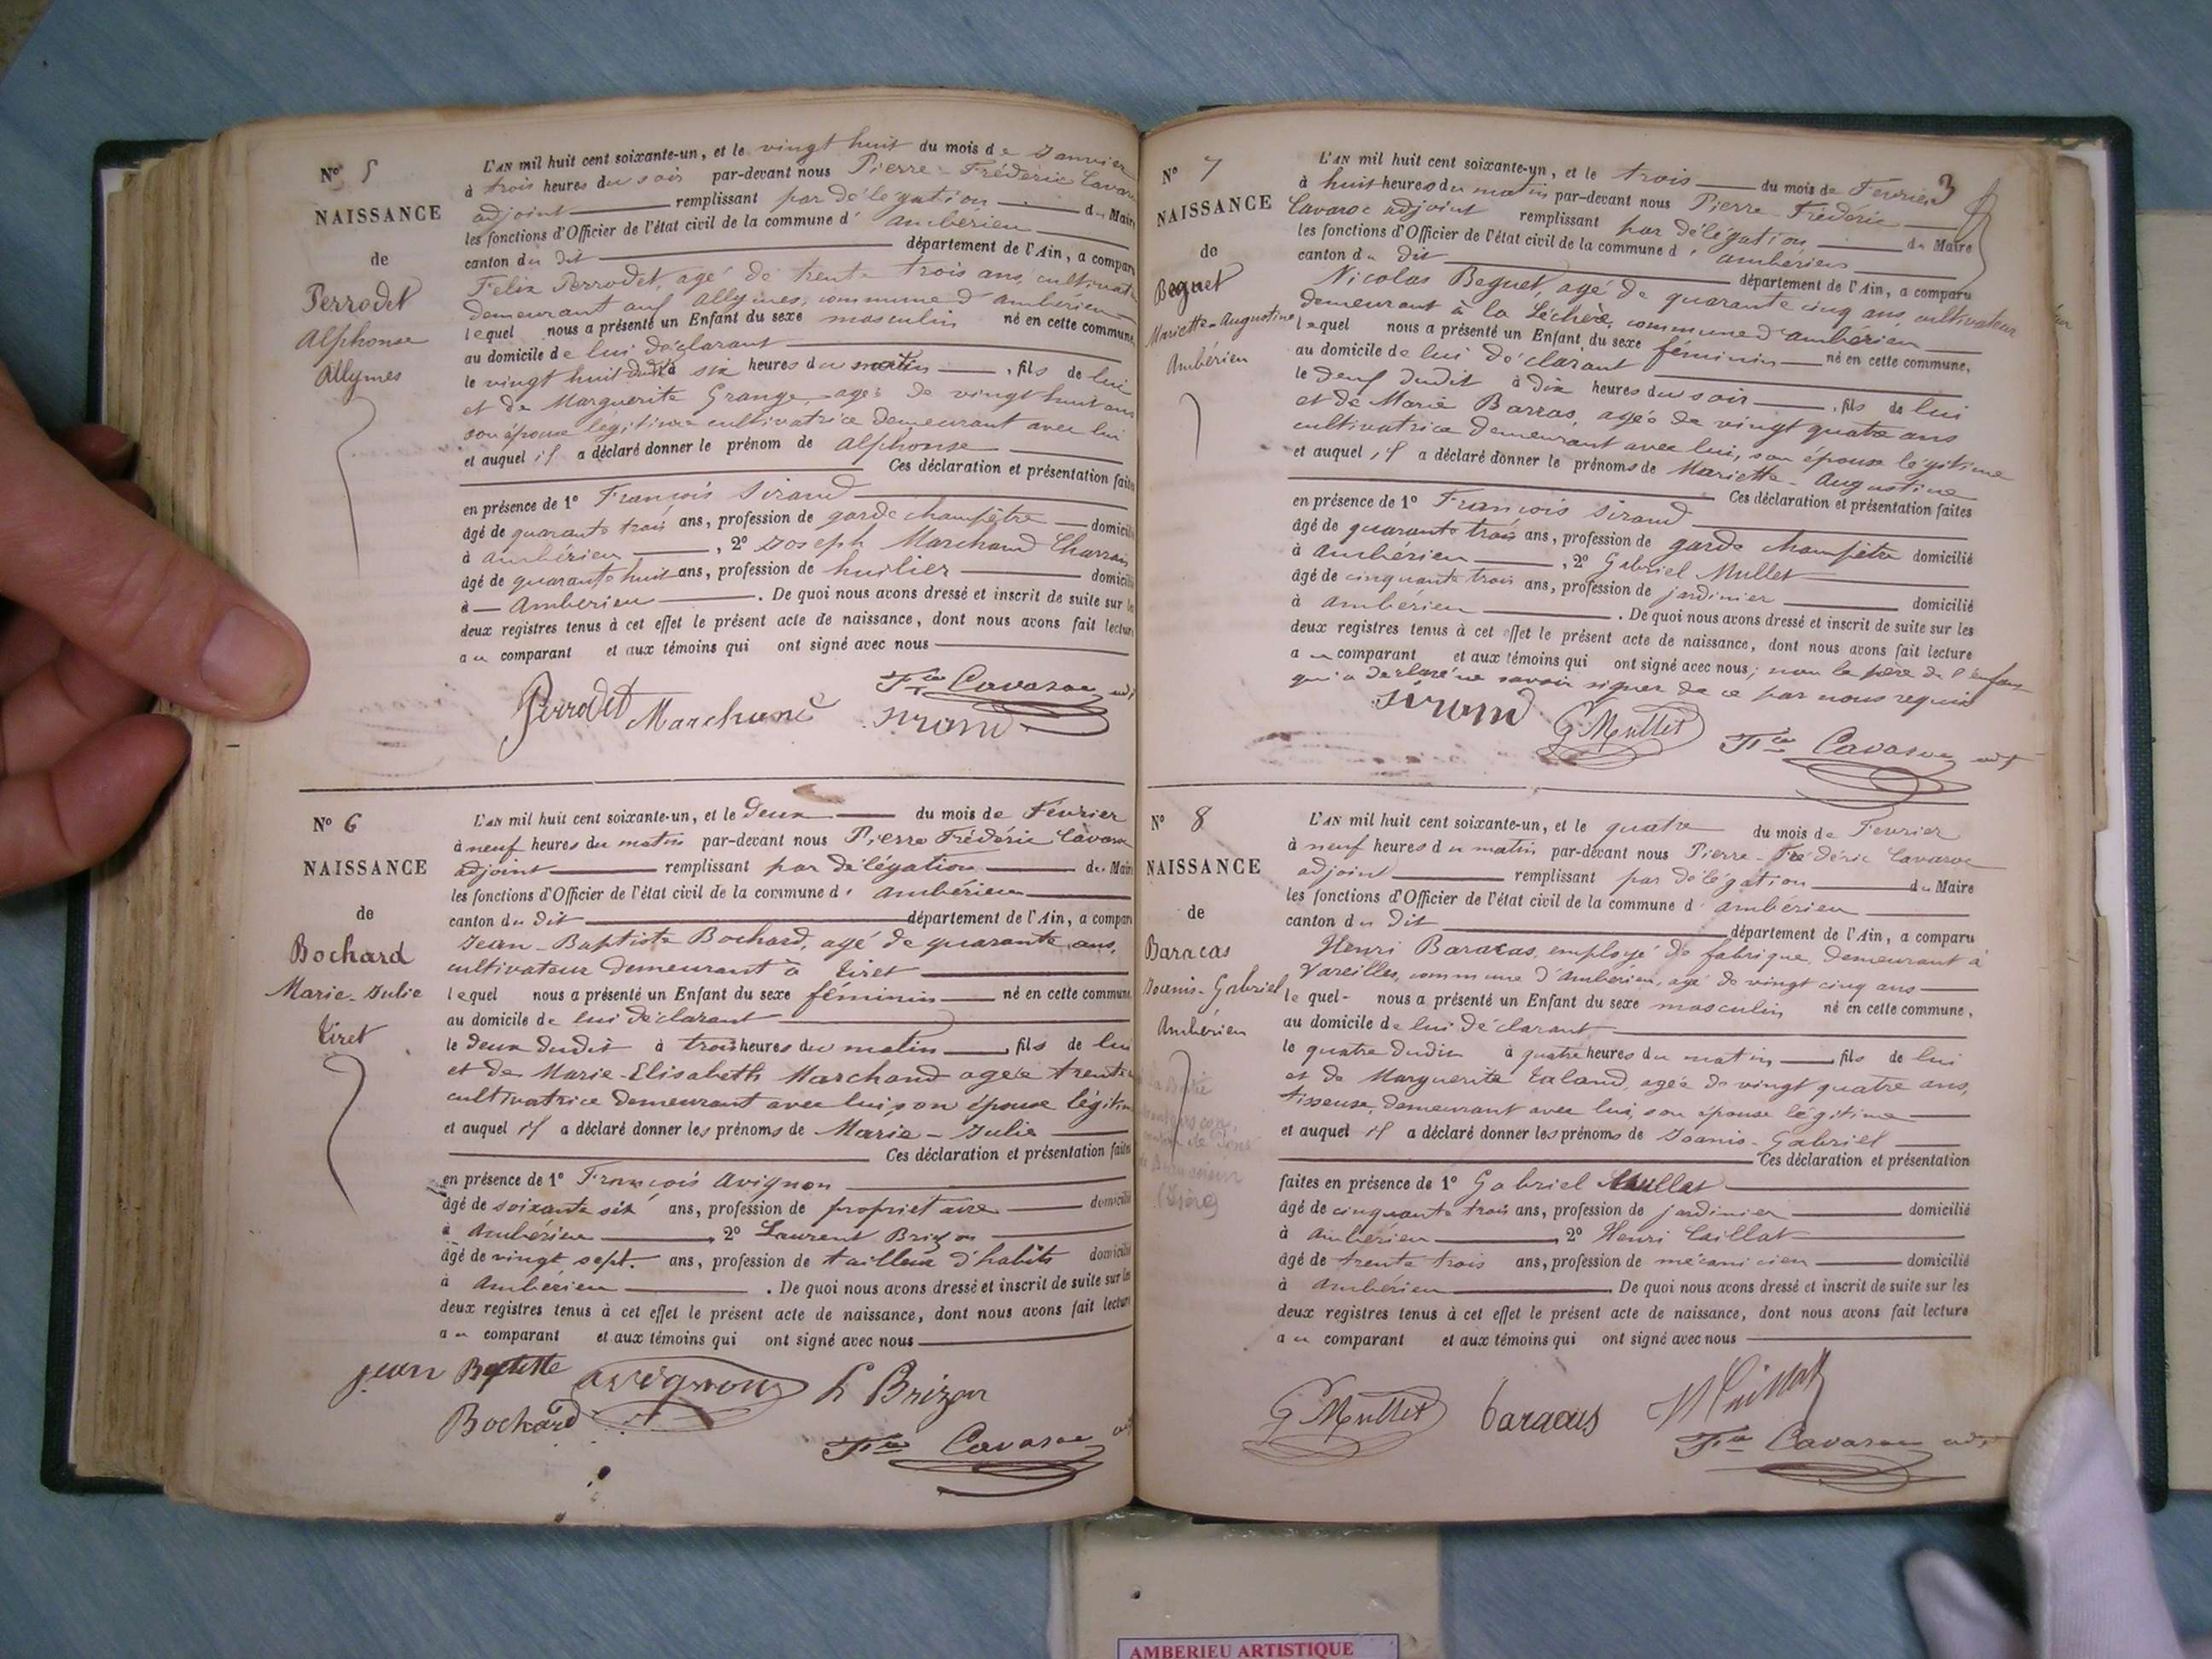 N° 5
NAISSANCE
de
Perrodet
Alphonse
Allymes
L'AN mil huit cent soixante-un, et le vingt huit du mois de Janvier
à trois heures du soir par-devant nous Pierre-Frédéric Cavaroc
adjoint remplissant par délégation du Maire
les fonctions d'Officier de l'état civil de la commune d' Ambérieu
canton du dit département de l'Ain, a comparu
Felix Perrodet, agé de trente trois ans, cultivateur
demeurant aux Allymes, commune d'Ambérieu
lequel nous a présenté un Enfant du sexe masculin né en cette commune,
au domicile de lui déclarant
le vingt huit dudit à six heures du matin, fils de lui
et de Marguerite Grange, agée de vingt huit ans
son épouse légitime cultivatrice demeurant avec lui
et auquel il a déclaré donner le prénom de Alphonse
Ces déclaration et présentation faites
en présence de 1° François Sirand
âgé de quarante trois ans, profession de garde champêtre domicilié
à Ambérieu, 2° Joseph Marchand Charrain
âgé de quarante huit ans, profession de huilier domicilié
à Ambérieu. De quoi nous avons dressé et inscrit de suite sur les
deux registres tenus à cet effet le présent acte de naissance, dont nous avons fait lecture
au comparant et aux témoins qui ont signé avec nous
Perrodet Marchand Sirand Cavaroc adj
N° 6
NAISSANCE
de
Bochard
Marie-Julie
Tiret
L'AN mil huit cent soixante-un, et le deux du mois de Février
à neuf heures du matin par-devant nous Pierre Frédéric Cavaroc
adjoint remplissant par délégation du Maire
les fonctions d'Officier de l'état civil de la commune d' Ambérieu
canton du dit département de l'Ain, a comparu
Jean-Baptiste Bochard, agé de quarante ans,
cultivateur demeurant à Tiret
lequel nous a présenté un Enfant du sexe féminin né en cette commune,
au domicile de lui déclarant
le deux dudit à trois heures du matin, fils de lui
et de Marie-Elisabeth Marchand agée trente
cultivatrice demeurant avec lui son épouse légitime
et auquel il a déclaré donner les prénoms de Marie-Julie
Ces déclaration et présentation faites
en présence de 1° François Avignon
âgé de soixante six ans, profession de propriétaire domicilié
à Ambérieu, 2° Laurent Brizon
âgé de vingt sept. ans, profession de tailleur d'habits domicilié
à Ambérieu. De quoi nous avons dressé et inscrit de suite sur les
deux registres tenus à cet effet le présent acte de naissance, dont nous avons fait lecture
au comparant et aux témoins qui ont signé avec nous
Jean Baptiste Avignon L Brizon
Bochard Cavaroc adj
3
N° 7
NAISSANCE
de
Beguet
Mariette-Augustine
Ambérieu
L'AN mil huit cent soixante-un, et le trois du mois de Fevrier
à huit heures du matin par-devant nous Pierre-Frédéric
Cavaroc adjoint remplissant par délégation du Maire
les fonctions d'Officier de l'état civil de la commune d' Ambérieu
canton du dit département de l'Ain, a comparu
Nicolas Beguet, agé de quarante cinq ans, cultivateur
demeurant à la Léchère, commune d'Ambérieu
lequel nous a présenté un Enfant du sexe féminin né en cette commune,
au domicile de lui déclarant
le deux dudit à dix heures du soir, fils de lui
et de Marie Barras, agée de vingt quatre ans
cultivatrice demeurant avec lui, son épouse légitime
et auquel il a déclaré donner le prénoms de Mariette-Augustine
Ces déclaration et présentation faites
en présence de 1° François Sirand
âgé de quarante trois ans, profession de garde champêtre domicilié
à Ambérieu, 2° Gabriel Mullet
âgé de cinquante trois ans, profession de jardinier domicilié
à Ambérieu. De quoi nous avons dressé et inscrit de suite sur les
deux registres tenus à cet effet le présent acte de naissance, dont nous avons fait lecture
au comparant et aux témoins qui ont signé avec nous; non le père de l'enfant
qui a déclaré ne savoir signer de ce par nous requis
Sirand G Mullet Cavaroc adj
N° 8
NAISSANCE
de
Baracas
Joanis-Gabriel
Ambérieu
L'AN mil huit cent soixante-un, et le quatre du mois de Fevrier
à neuf heures du matin par-devant nous Pierre-Frédéric Cavaroc
adjoint remplissant par délégation du Maire
les fonctions d'Officier de l'état civil de la commune d' Ambérieu
canton du dit département de l'Ain, a comparu
Henri Baracas, employé de fabrique, demeurant à
Vareilles, commune d'Ambérieu, agé de vingt cinq ans
lequel- nous a présenté un Enfant du sexe masculin né en cette commune,
au domicile de lui déclarant
le quatre dudit à quatre heures du matin fils de lui
et de Marguerite Taland, agée de vingt quatre ans,
tisseuse, demeurant avec lui, son épouse légitime
et auquel il a déclaré donner les prénoms de Joanis-Gabriel
Ces déclaration et présentation
faites en présence de 1° Gabriel Mullet
âgé de cinquante trois ans, profession de jardinier domicilié
à Ambérieu, 2° Henri Caillat
âgé de trente trois ans, profession de mécanicien domicilié
à Ambérieu. De quoi nous avons dressé et inscrit de suite sur les
deux registres tenus à cet effet le présent acte de naissance, dont nous avons fait lecture
au comparant et aux témoins qui ont signé avec nous
G Mullet Baracas H Caillat
Cavaroc adj
AMBERIEU ARTISTIQUE